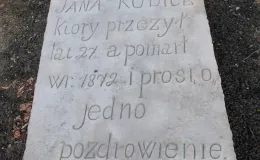 JANA
który przeżył
lat 27 a pomarł
w r. 1872 i prosi o
jedno
pozdrowienie